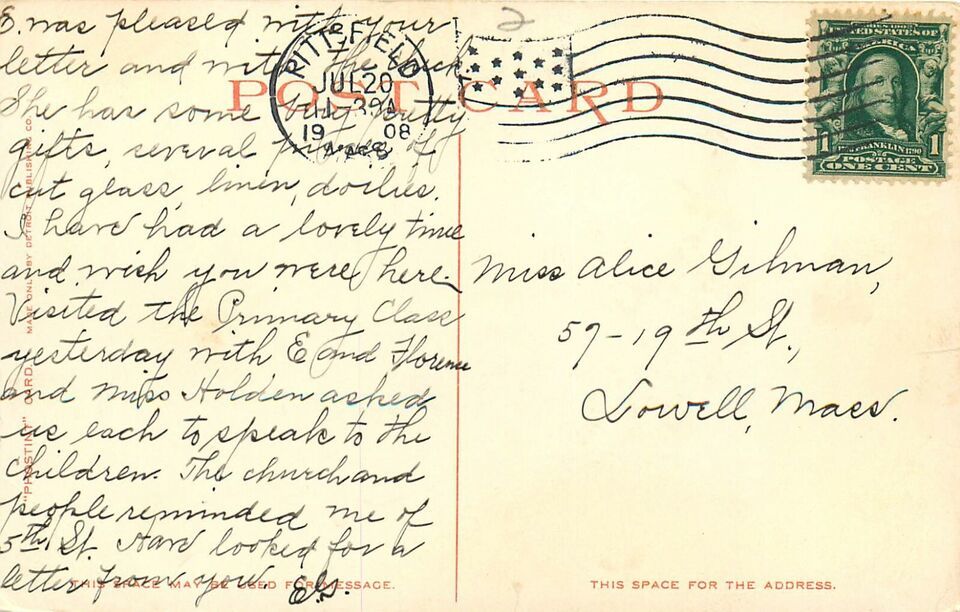 E. was pleased with your
letter and with the
She has some very pretty
gifts, several pieces of
cut glass, linen, doilies.
I have had a lovely time
and wish you were here.
Visited the Primary Class
yesterday with E and Florence
and Miss Holden asked
us each to speak to the
children. The church and
people reminded me of
5th St. Have looked for a
letter from you.
POST CARD
PITTSFIELD
JUL 20
1908
MASS
UNITED STATES OF
AMERICA
1 FRANKLIN 1790 1
POSTAGE
ONE CENT
Miss Alice Gilman,
57-19th St.,
Lowell, Mass.
"PHOSTINT" CARD. MADE ONLY BY DETROIT PUBLISHING CO.
THIS SPACE MAY BE USED FOR MESSAGE.
THIS SPACE FOR THE ADDRESS.